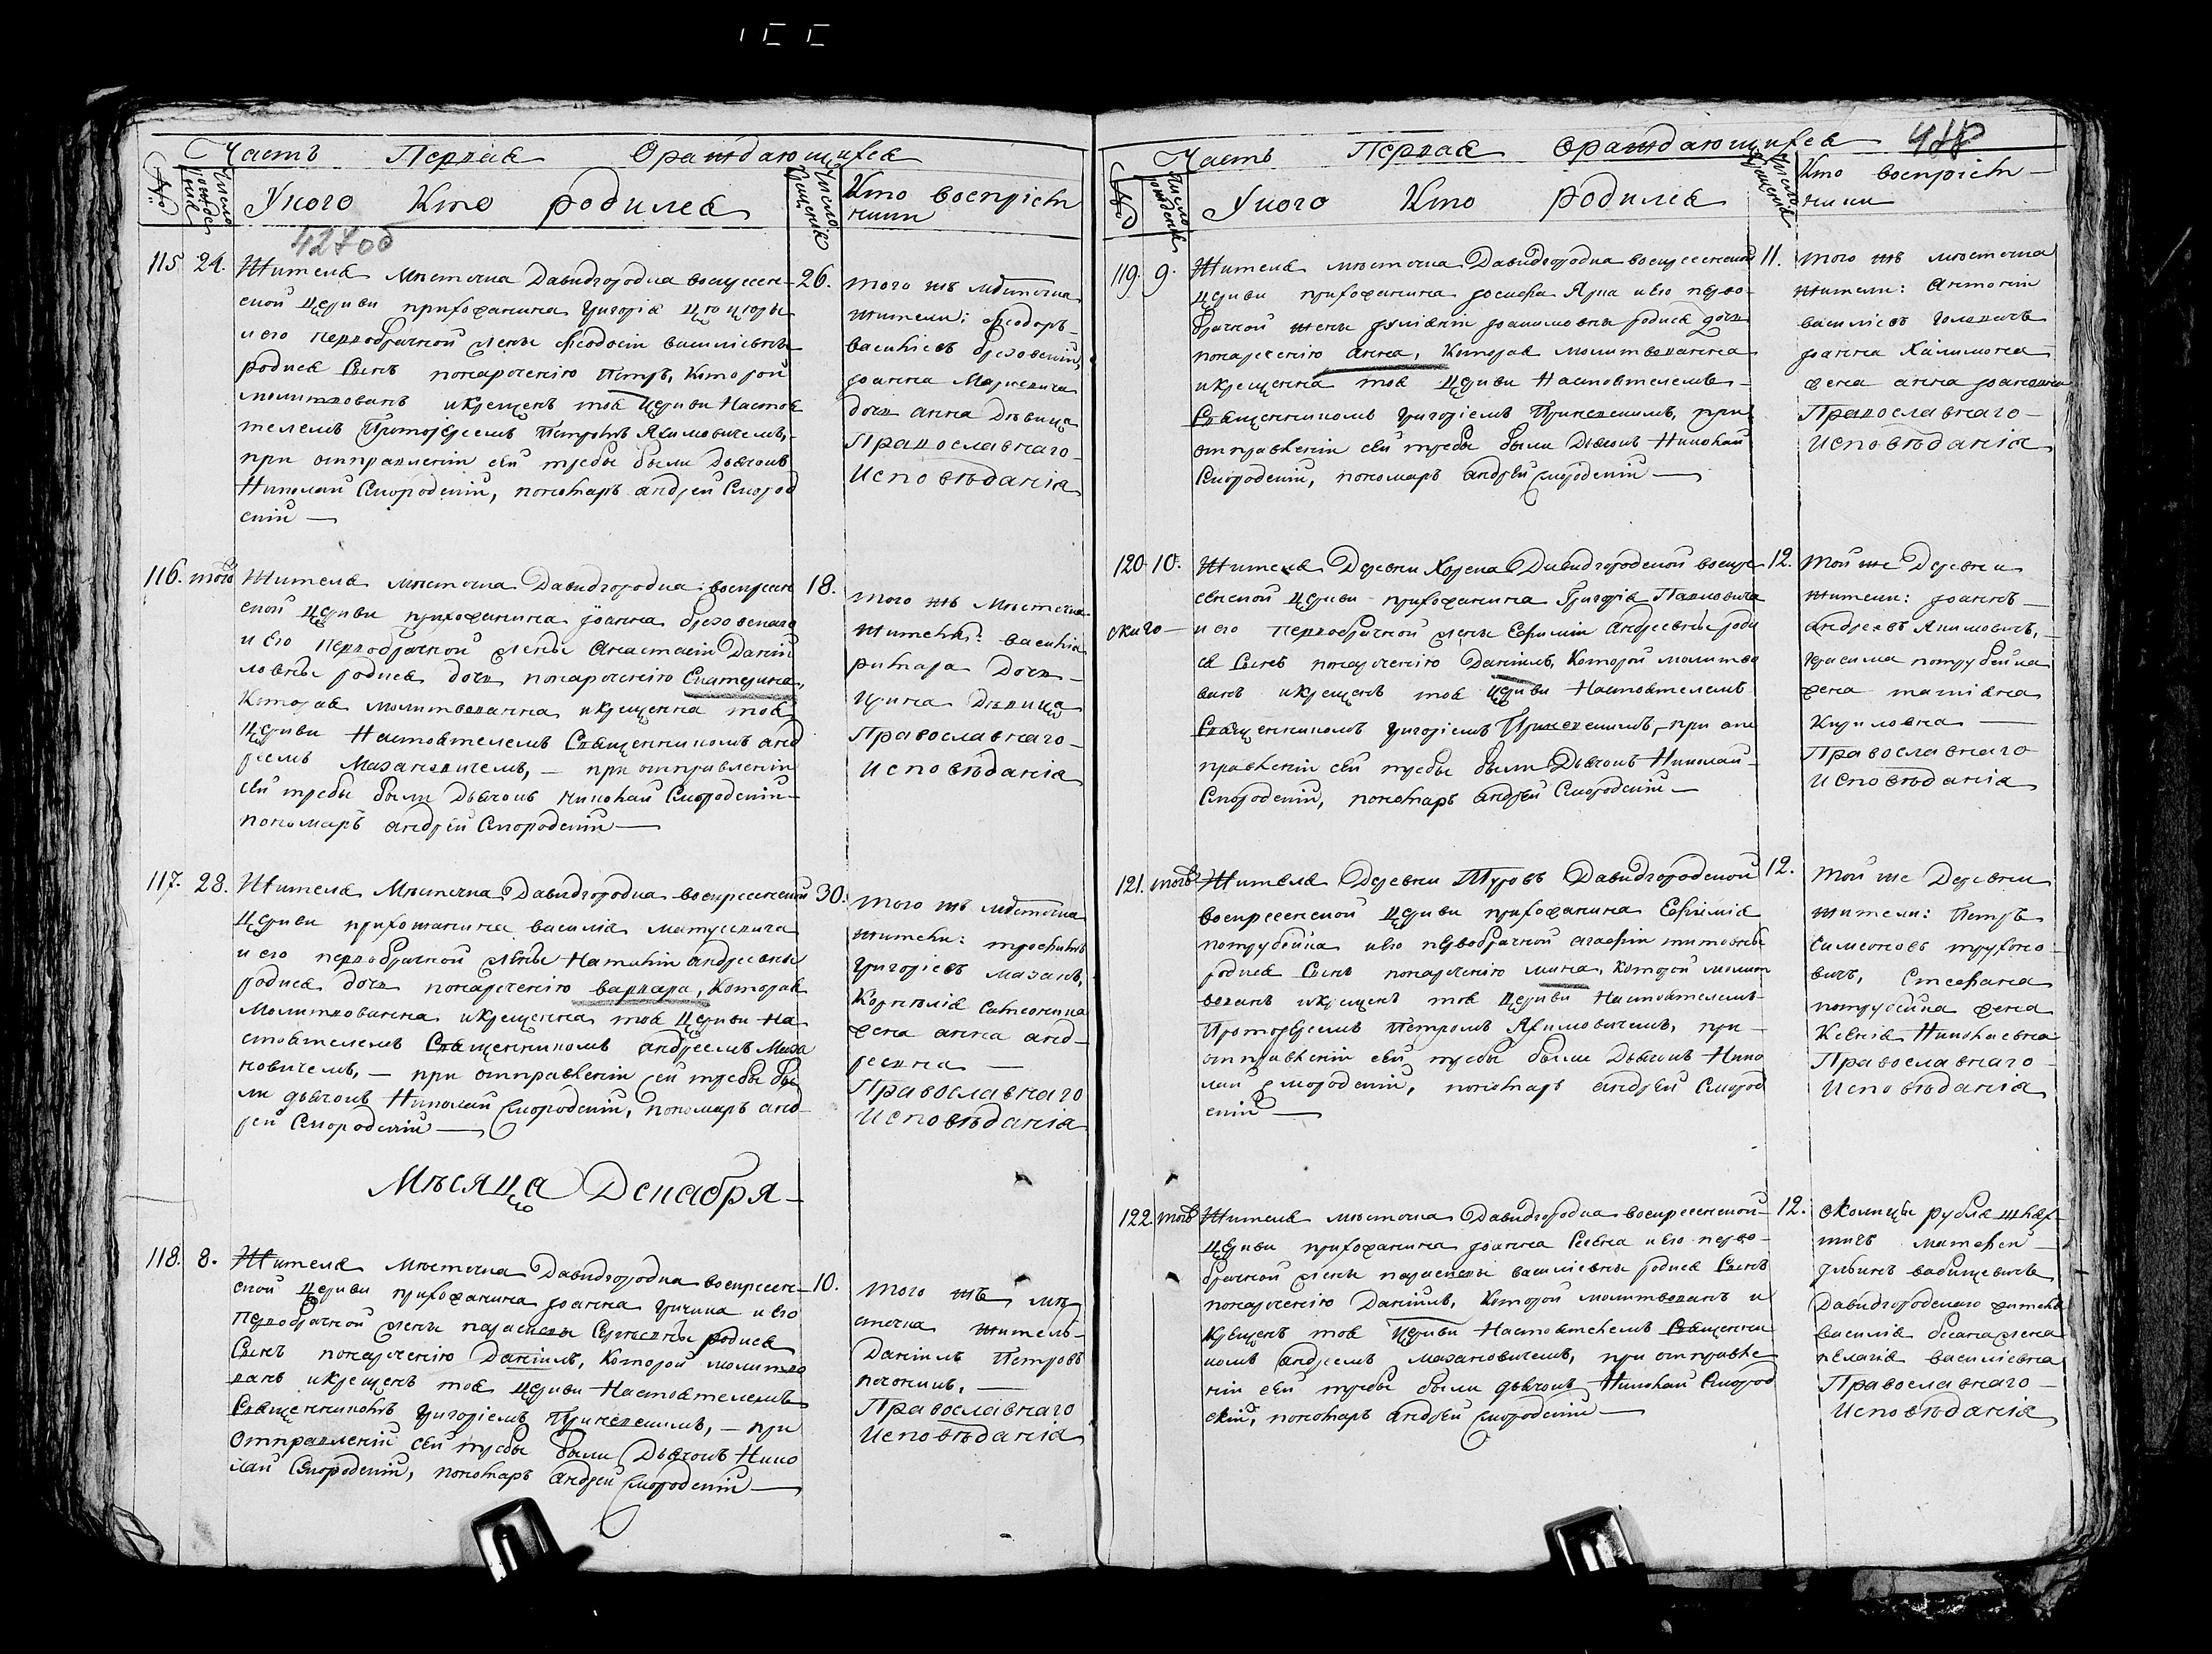 Часть Первая Ораждающихся
№
Число рождения
У кого Кто родился
Число крещенія
Кто воспріем
ники
115 24. Жителя мѣстечка Давидгородка воскресен- 26.
ской церкви прихожанина Григорія
и его первобрачной жены Феодосіи василіевны
родился Сынъ понаречению Петръ, Которой
молитвованъ икрещенъ тоя Церкви Настоя
телемъ Протоіереемъ Петромъ Якимовичемъ,-
при отправленіи сей требы были Дьячокъ
Николай Смородскій, пономаръ андрей Смород
скій —
того жъ мѣстечка
жители: феодоръ
василіевъ
Іоанна
дочь анна Дѣвица
Православнаго-
Исповѣданія
116. того Жителя мѣстечка Давидгородка воскресен 18.
ской церкви прихожанина Іоанна
и Его первобрачной жены Анастасіи Даніи
ловны родися дочь понаречению Екатерина,
Которая молитвованна икрещенна тоя
Церкви Настоятелемъ Священникомъ анд
реемъ Мазановичемъ, — при отправленіи
сей требы были Дьячокъ николай Смородскій-
пономаръ андрей Смородскій —
того жъ Мѣстечка
жители: василія
дочь
Дѣвица
Православнаго-
Исповѣданія
117. 28. Жителя Мѣстечка Давидгородка воскресенской 30.
Церкви прихожанина василія матусевича
и его первобрачной жены Наталіи андреевны
родися дочь понаречению варвара, Которая
Молитвованна икрещенна тоя Церкви На
стоятелемъ Священникомъ андреемъ Маза
новичемъ, — при отправленіи сей требы бы
ли дьячокъ Николай Смородскій, пономаръ анд-
рей Смородскій —
того жъ мѣстечка
жители: трофимъ
Григоріевъ мазанъ,
Корнилія
жена анна анд-
реевна —
Православнаго
Исповѣданія
Мѣсяца Декабря-
118. 8. Жителя Мѣстечка Давидгородка воскресен- 10.
ской Церкви прихожанина Іоанна и Его
первобрачной жены параскевы Сергіевны родися
Сынъ понаречению Даніилъ, Которой молитво
ванъ икрещенъ тоя церкви Настоятелемъ
Священникомъ Григоріемъ — при
Отправленіи сей требы были Дьячокъ Нико
лай Смородскій, пономаръ Андрей Смородскій —
того жъ мѣ
стечка житель-
Даніилъ Петровъ
—
Православнаго
Исповѣданія
Часть Первая Ораждающихся
№
Число рожденія
У кого Кто родился
Число крещенія
Кто воспріем-
ники
119. 9. Жителя мѣстечка Давидгородка воскресенской 11.
Церкви прихожанина Іосифа и Его перво-
брачной жены Іуліаніи Іоакимовны родися дочь
понаречению анна, Которая молитвованна
икрещенна тоя Церкви Настоятелемъ-
Священникомъ Григоріемъ при
отправленіи сей требы были Дьячокъ Николай
Смородскій, пономаръ Андрей Смородскій —
того жъ мѣстечка
жители: Антоній
василіевъ
Іоанна
жена анна
Православнаго-
Исповѣданія
120. 10. Жителя Деревни Хорска Давидгородской воскре 12.
сенской церкви прихожанина Григорія Павловича
и его первобрачной жены Евфиміи Андреевны роди
ся Сынъ понаречению Даніилъ, Которой молитво
ванъ икрещенъ тоя церкви Настоятелемъ
Священникомъ Григоріемъ при от
правленіи сей требы были Дьячокъ Николай-
Смородскій, пономаръ Андрей Смородскій —
Той же Деревни
жители: Іоаннъ
Андреевъ Якимовичъ,
Герасима потрубейка
жена татіана
Кириловна —
Православнаго
Исповѣданія
121. того Жителя Деревни Туровъ Давидгородской 12.
воскресенской церкви прихожанина Евфимія
потрубейка и его первобрачной агафіи титовны
родися Сынъ понаречению мина, Которой молит
вованъ икрещенъ тоя церкви Настоятелемъ-
Протоіереемъ Петромъ Якимовичемъ, при-
отправленіи сей требы были Дьячокъ Нико
лай Смородскій, пономаръ андрей Смород
скій —
Той же Деревни
жители: Петръ
Симеоновъ трухоно
вичъ, Стефана
потрубейка жена
Ксенія Николаевна
Православнаго
Исповѣданія
122. того Жителя мѣстечка Давидгородка воскресенской- 12.
церкви прихожанина Іоанна и Его перво-
брачной жены параскевы василіевны родися Сынъ
понаречению Даніилъ, Которой молитвованъ и
крещенъ тоя церкви Настоятелемъ Священни
комъ Андреемъ Мазановичемъ, при отправле
ніи сей требы были дьячокъ Николай Смород
скій, пономаръ Андрей Смородскій —
Околицы рубля шлях-
тичъ матфей
Давидгородскаго жителя
василія жена
пелагія василіевна
Православнаго-
Исповѣданія